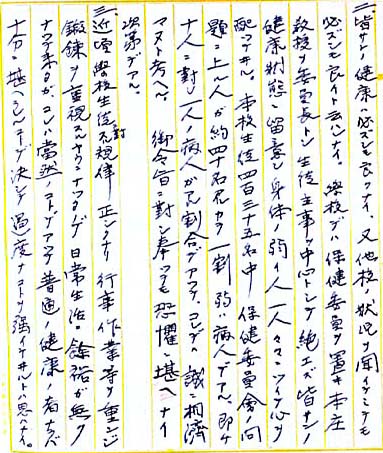 二、皆サンノ健康ハ必ズシモ良クナイ、又他校ノ状況ヲ聞イテミテモ
必ズシモ良イト云ハナイ。學校デハ保健委員ヲ置キ本庄
教授ヲ委員長トシ生徒主事ヲ中心トシテ絶エズ皆サンノ
健康状態ニ留意シ身体ノ弱イ人一人々々ニツイテ心ヲ
配ツテヰル。本校生徒四百三十五名中保健委員會ノ問
題ニ上ル人ガ約四十名居ルカラ一割弱ハ病人デアル、即チ
十人ニ對シ一人ノ病人ガ居ル割合デアツテ、コレデハ誠ニ相済
マヌト考ヘル。御令旨ニ對シ奉ツテモ恐懼ニ堪ヘナイ
次第デアル。
三、近頃學校生徒ニ對スル規律正シクナリ行事作業等ヲ重ンジ
鍛錬ヲ重視スルヤウニナツタノデ日常生活ニ餘裕ガ無ク
ナツテ来タガ、コレハ當然ノコトデアツテ普通ノ健康ノ者ナラバ
十分ニ堪ヘラレルコトデ決シテ過度ナコトヲ強イテヰルトハ思ハナイ。